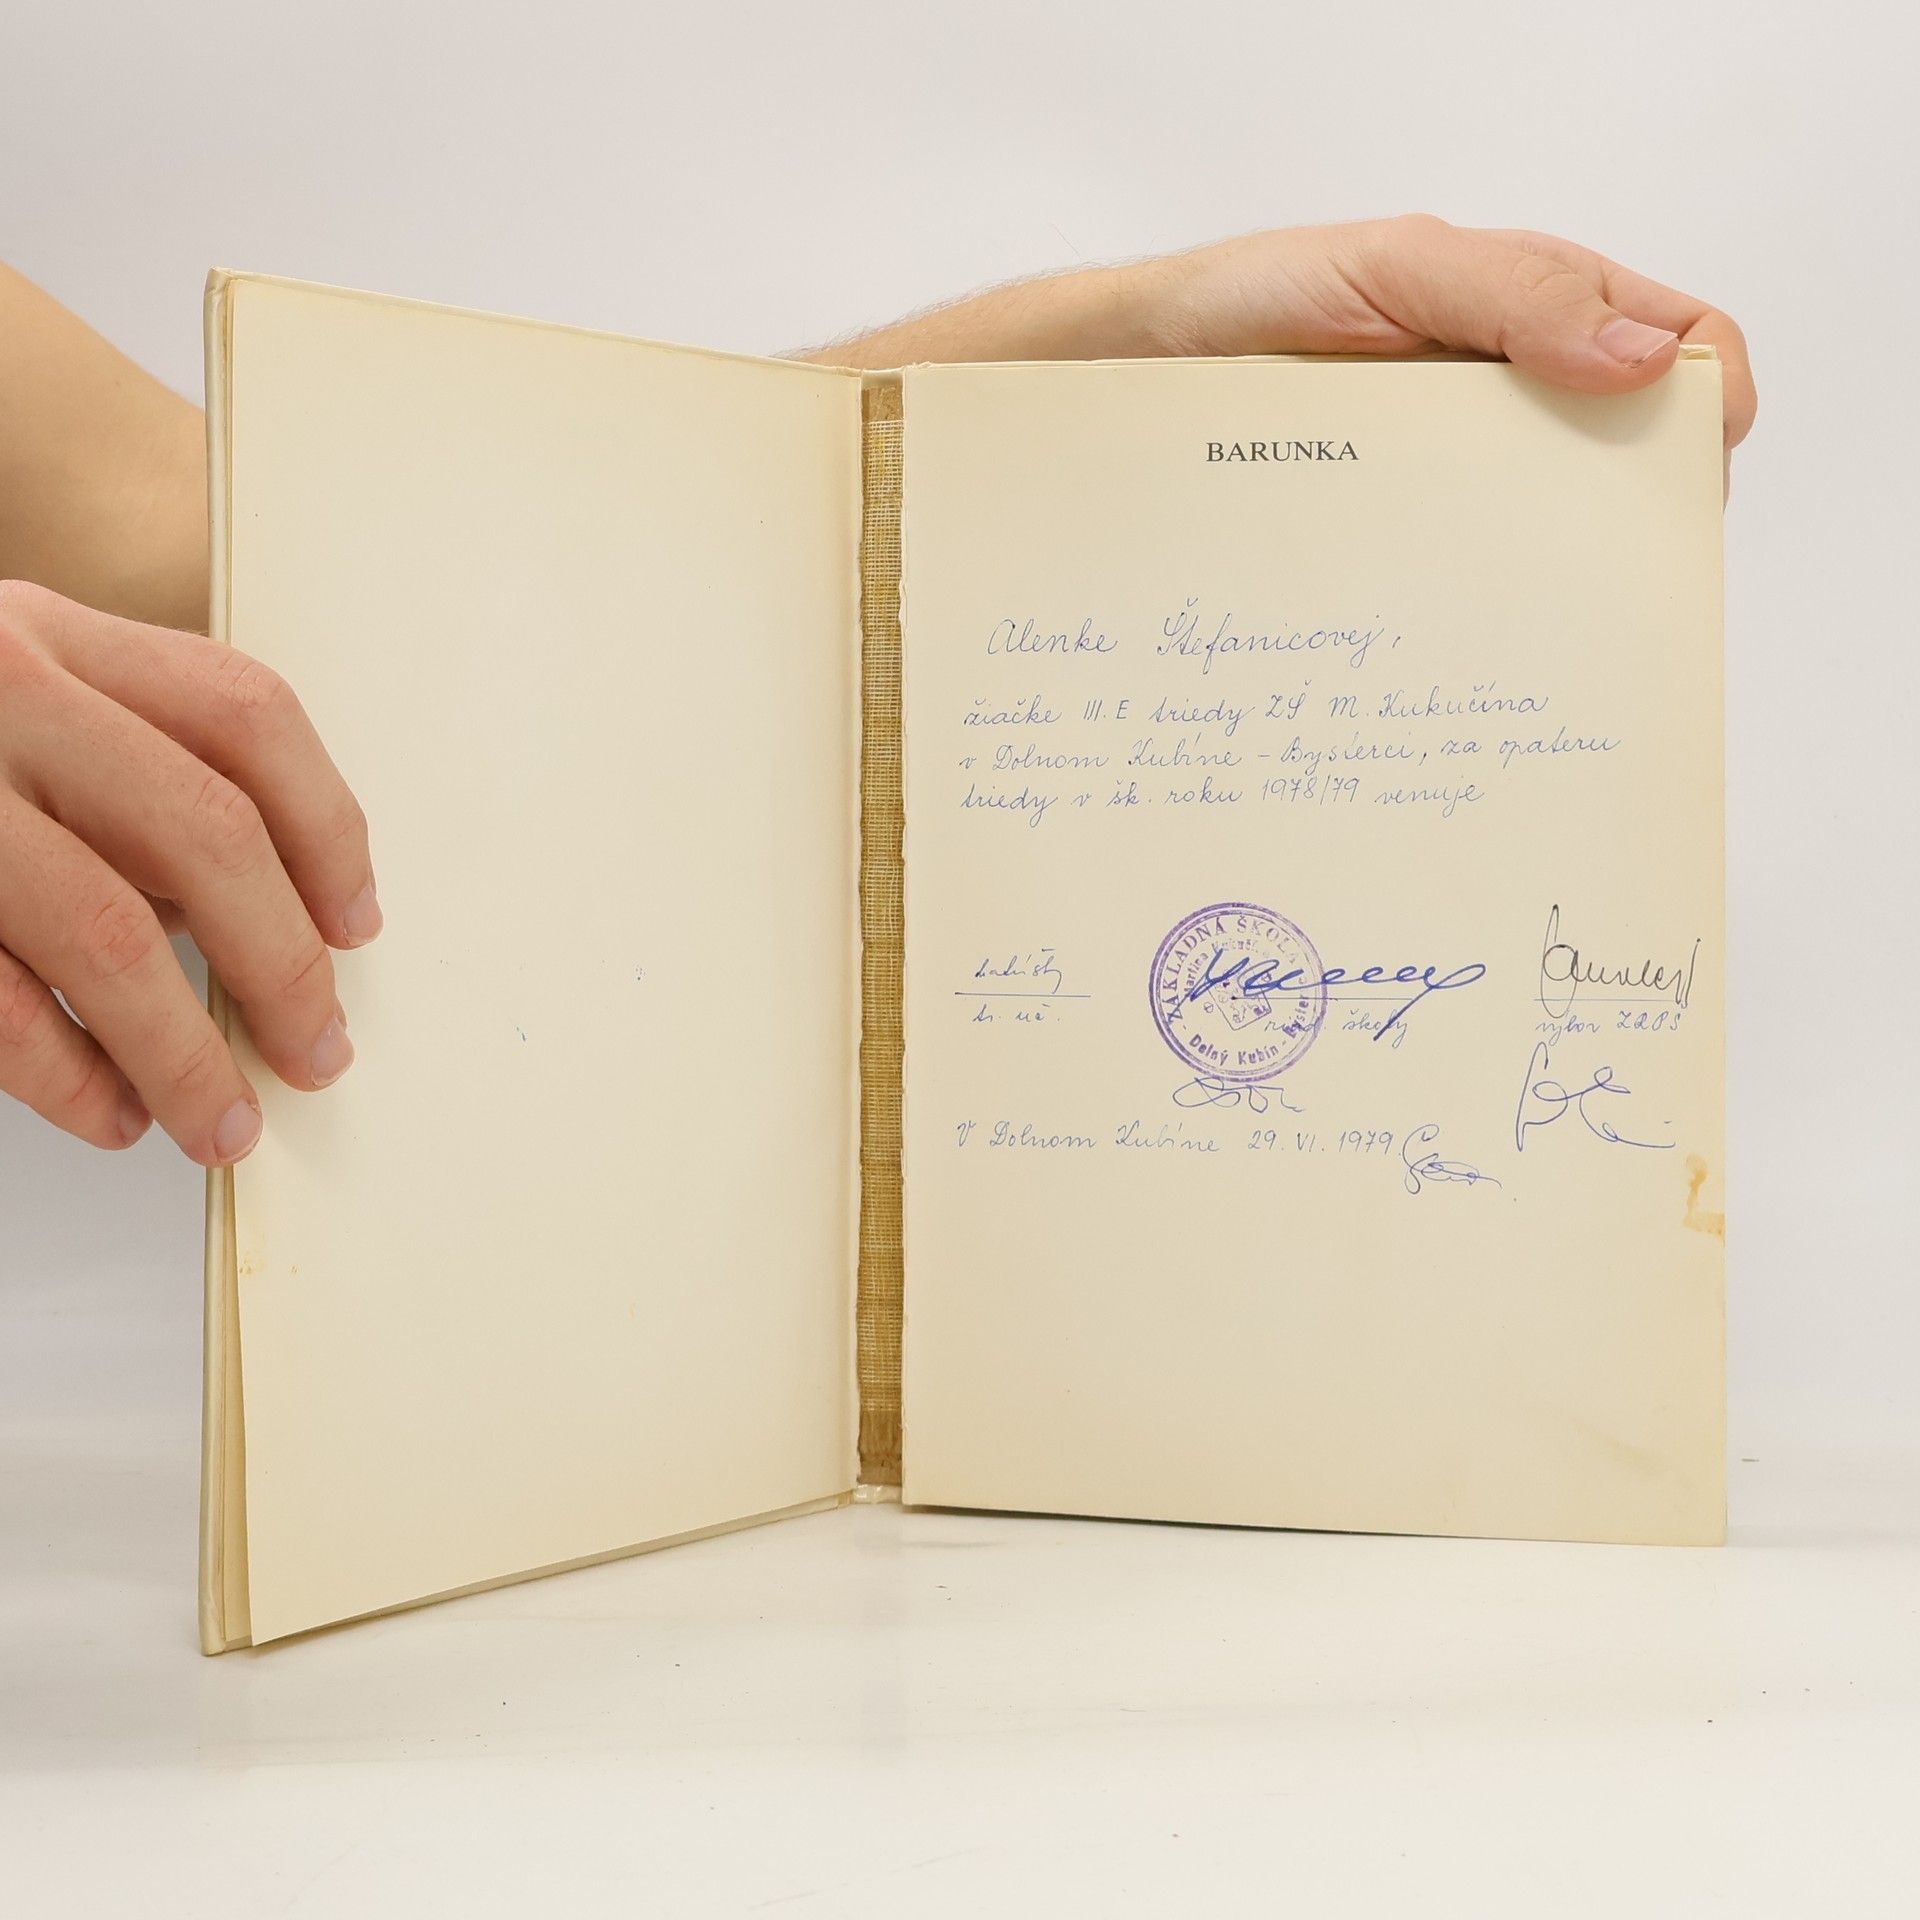 BARUNKA
Alenke Štefanicovej,
žiačke III. E triedy ZŠ M. Kukučína
v Dolnom Kubíne - Bysterci, za opateru
triedy v šk. roku 1978/79 venuje
ZÁKLADNÁ ŠKOLA
Martina Kukučína
Dolný Kubín - Bysterec
tr. uč.
riad. školy
výbor ZRPŠ
V Dolnom Kubíne 29. VI. 1979